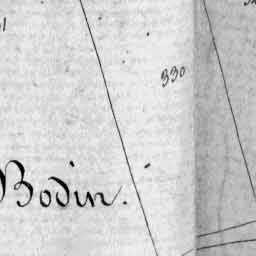 330
Bodin.